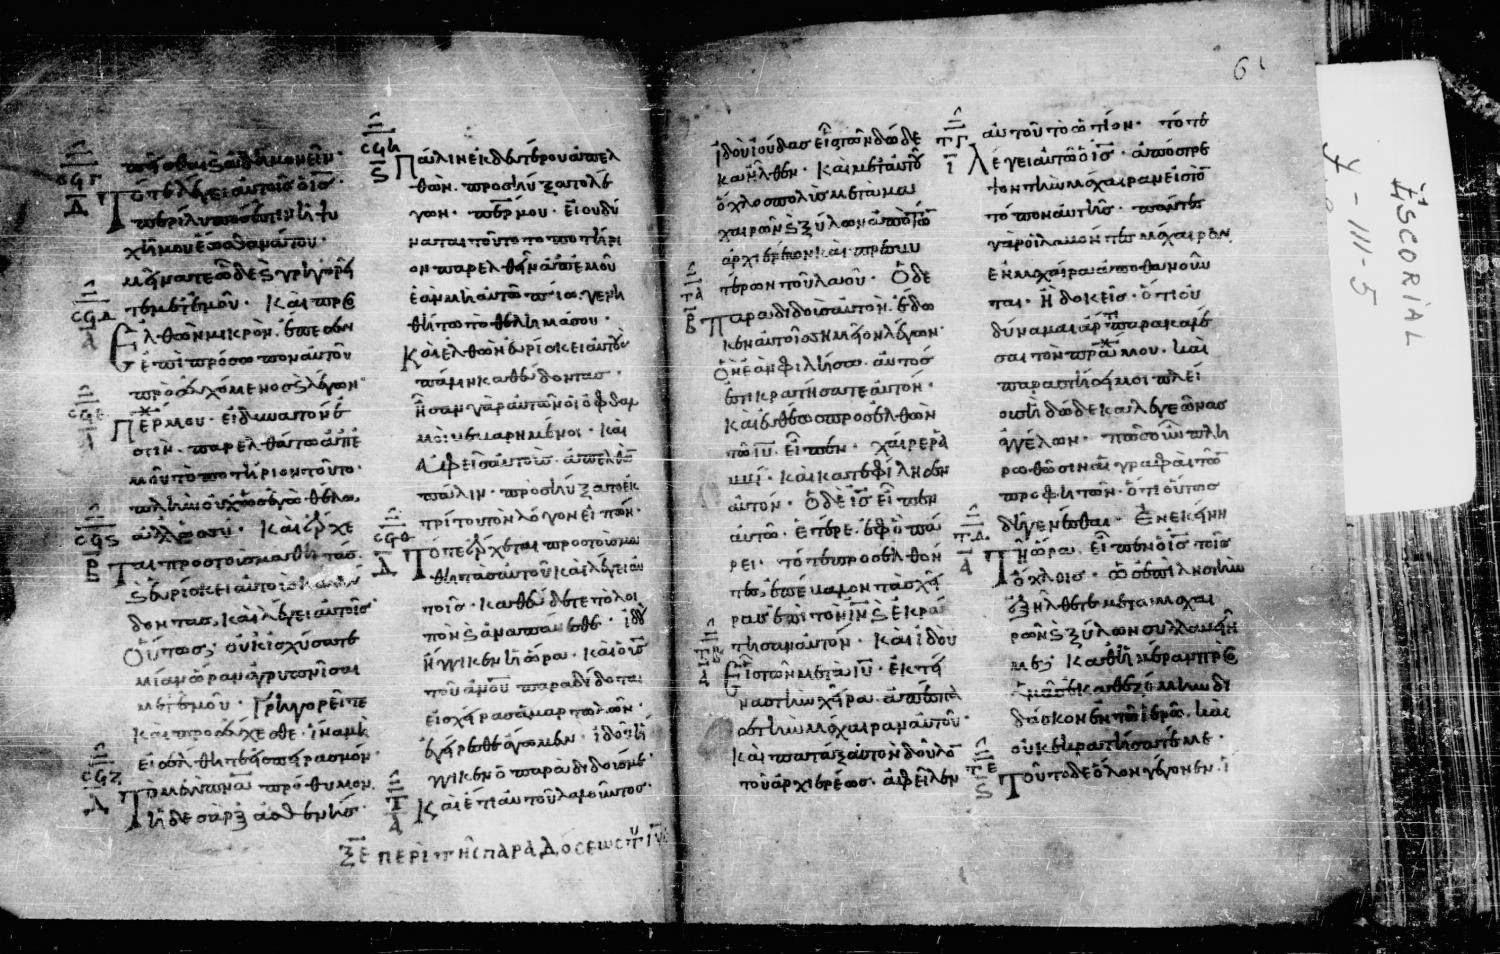 πεῖσθαι καὶ ἀδημονεῖν·
Τότε λέγει αὐτοῖς ὁ ῑς̄·
περίλυπός ἐστιν ἡ ψυ
χή μου ἕως θανάτου·
μείνατε ὧδε καὶ γρηγορεῖ
τε μετ' ἐμοῦ· Καὶ προ
Ἐλθὼν μικρὸν. ἔπεσεν
ἐπὶ πρόσωπον αὐτοῦ
προσευχόμενος καὶ λέγων·
Περ μου· εἰ δυνατόν ἐ
στιν. παρελθάτω ἀπ' ἐ
μοῦ τὸ ποτήριον τοῦτο·
πλὴν οὐχ ὡς ἐγὼ θέλω,
ἀλλ' ὡς σύ· Καὶ ἔρχε
Ται πρὸς τοὺς μαθητὰς.
καὶ εὑρίσκει αὐτοὺς καθεύ
δοντας, καὶ λέγει αὐτοῖς
Οὕτως; οὐκ ἰσχύσατε
μίαν ὥραν ἀγρυπνῆσαι
μετ' ἐμοῦ· Γρηγορεῖτε
καὶ προσεύχεσθε. ἵνα μὴ
εἰσέλθητε εἰς πειρασμόν·
Τὸ μὲν πν̄α πρόθυμον.
ἡ δὲ σὰρξ ἀσθενής·
ϹϤΓ
Δ
ϹϤΔ
Α
ϹϤΕ
Α
ϹϤϚ
Β
ϹϤΖ
Δ
Πάλιν ἐκ δευτέρου ἀπελ
θὼν. προσηύξατο λέ
γων· περ μου· εἰ οὐ δύ
ναται τοῦτο τὸ ποτήρι
ον παρελθεῖν ἀπ' ἐμοῦ
ἐὰν μὴ αὐτὸ πίω. γενη
θήτω τὸ θέλημά σου·
Καὶ ἐλθὼν εὑρίσκει αὐτοὺς
πάλιν καθεύδοντας·
ἦσαν γὰρ αὐτῶν οἱ ὀφθαλ
μοὶ βεβαρημένοι· Καὶ
ἀφεὶς αὐτοὺς. ἀπελθὼν
πάλιν. προσηύξατο ἐκ
τρίτου τὸν λόγον εἰπών·
Τότε ἔρχεται πρὸς τοὺς μα
θητὰς αὐτοῦ καὶ λέγει αὐ
τοῖς· καθεύδετε τὸ λοι
πὸν καὶ ἀναπαύεσθε· ἰδοὺ
ἤγγικεν ἡ ὥρα· καὶ ὁ ῡς̄
τοῦ ἀν̄ου παραδίδοται
εἰς χεῖρας ἁμαρτωλῶν·
ἐγείρεσθε ἄγωμεν· ἰδοὺ ἤ
γγικεν ὁ παραδιδούς με·
Καὶ ἔτι αὐτοῦ λαλοῦντος·
ϹϤΗ
Ϛ
ϹϤΘ
Δ
Τ
Α
ΞΕ ΠΕΡῚ ΤΗ͂Ϲ ΠΑΡΑΔΌϹΕΩϹ ΤΟΥ ῙῩ
61
ἰδοὺ ἰούδας εἷς τῶν δώδε
κα ἦλθεν· Καὶ μετ' αὐτοῦ
ὄχλος πολὺς μετὰ μα
χαιρῶν καὶ ξύλων ἀπὸ τῶν
ἀρχιερέων καὶ πρεσβυ
τέρων τοῦ λαοῦ· Ὁ δὲ
Παραδιδοὺς αὐτὸν. ἔδω
κεν αὐτοῖς σημεῖον λέγων·
Ὃν ἐὰν φιλήσω. αὐτός
ἐστι κρατήσατε αὐτόν·
Καὶ εὐθέως προσελθὼν
τῷ ῑῡ. εἶπεν· χαῖρε ῥα
ββί· καὶ κατεφίλησεν
αὐτόν· Ὁ δὲ ῑς̄ εἶπεν
αὐτῷ· ἑταῖρε. ἐφ' ὃ πά
ρει· τότε προσελθόν
τες, ἐπέβαλον τὰς χεῖ
ρας ἐπὶ τὸν ῑν̄ καὶ ἐκρά
τησαν αὐτόν· Καὶ ἰδοὺ
Εἷς τῶν μετὰ ῑῡ· ἐκτεί
νας τὴν χεῖρα. ἀπέσπα
σε τὴν μάχαιραν αὐτοῦ·
Καὶ πατάξας τὸν δοῦλον
τοῦ ἀρχιερέως. ἀφεῖλεν
ΤΑ
Β
ΤΒ
Α
αὐτοῦ τὸ ὠτίον· τότε
Λέγει αὐτῷ ὁ ῑς̄· ἀπόστρε
ψον τὴν μάχαιραν εἰς τὸν
τόπον αὐτῆς· πάντες
γὰρ οἱ λαβόντες μάχαιραν,
ἐν μαχαίρᾳ ἀποθανοῦν
ται· Ἢ δοκεῖς· ὅτι οὐ
δύναμαι ἄρτι παρακαλέ
σαι τὸν πρ̄α μου· καὶ
παραστήσει μοι πλεί
ους ἢ δώδεκα λεγεῶνας
ἀγγέλων· πῶς οὖν πλη
ρωθῶσιν αἱ γραφαὶ τῶν
προφητῶν· ὅτι οὕτως
δεῖ γενέσθαι· Ἐν ἐκείνῃ
Τῇ ὥρᾳ. εἶπεν ὁ ῑς̄ τοῖς
ὄχλοις· ὡς ἐπὶ λῃστὴν
ἐξήλθετε μετὰ μαχαι
ρῶν καὶ ξύλων συλλαβεῖν
με; καθ' ἡμέραν πρὸς
ὑμᾶς ἐκαθεζόμην δι
δάσκων ἐν τῷ ἱερῷ. καὶ
οὐκ ἐκρατήσατέ με·
Τοῦτο δὲ ὅλον γέγονεν. ἵ
ΤΓ
Ι
ΤΔ
Α
ΤΕ
Ϛ
ESCORIAL
Y-III-5